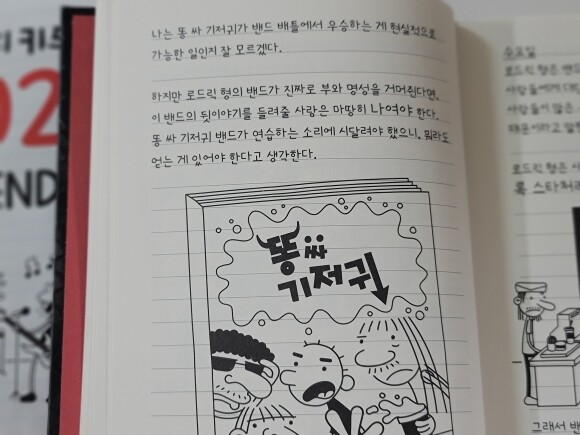 나는 똥 싸 기저귀가 밴드 배틀에서 우승하는 게 현실적으로
가능한 일인지 잘 모르겠다.
하지만 로드릭 형의 밴드가 진짜로 부와 명성을 거머쥔다면,
이 밴드의 뒷이야기를 들려줄 사람은 마땅히 나여야 한다.
똥 싸 기저귀 밴드가 연습하는 소리에 시달려야 했으니, 뭐라도
얻는 게 있어야 한다고 생각한다.
똥 싸
기저귀
수요일
로드릭 형은 밴드
사람들에게
사람들이 많은
때문이라고 말
로드릭 형은
록 스타처럼
그래서 밴
키드
02
END